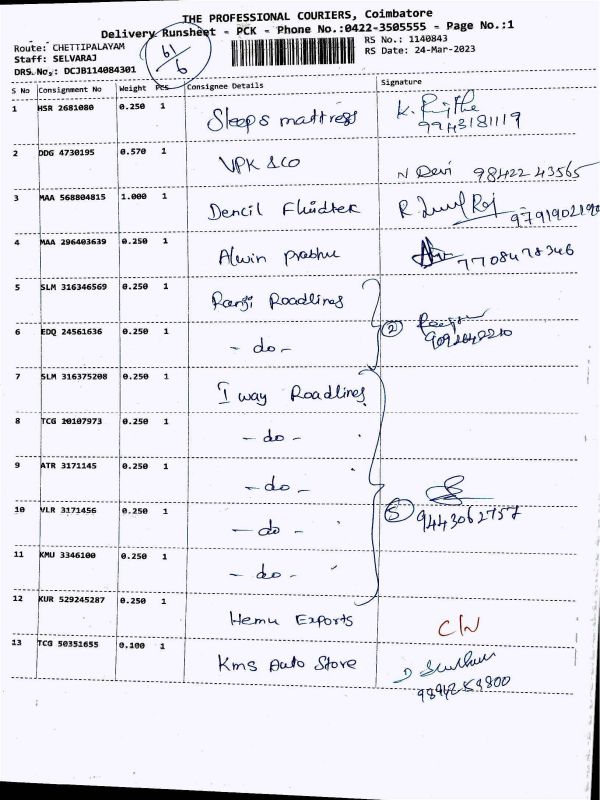 THE PROFESSIONAL COURIERS, Coimbatore
Delivery Runsheet - PCK - Phone No.:0422-3505555 - Page No.:1
Route: CHETTIPALAYAM RS No.: 1140843
Staff: SELVARAJ RS Date: 24-Mar-2023
DRS.No.: DCJB114084301
61/6
S No Consignment No Weight PCS Consignee Details Signature
1 HSR 2681080 0.250 1 Sleeps mattress
9943181119
2 DDG 4730195 0.570 1 VPK & Co N Devi 98422 43565
3 MAA 568804815 1.000 1 Dencil Fluidtek
4 MAA 296403639 0.250 1 Alwin Prabhu 7708478346
5 SLM 316346569 0.250 1 Ranji Roadlines
6 EDQ 24561636 0.250 1 - do - 2
7 SLM 316375208 0.250 1 I way Roadlines
8 TCG 10107973 0.250 1 - do -
9 ATR 3171145 0.250 1 - do -
10 VLR 3171456 0.250 1 - do - 5 9443062757
11 KMU 3346100 0.250 1 - do -
12 KUR 529245287 0.250 1 Hemu Exports C/N
13 TCG 50351655 0.100 1 Kms Auto Store